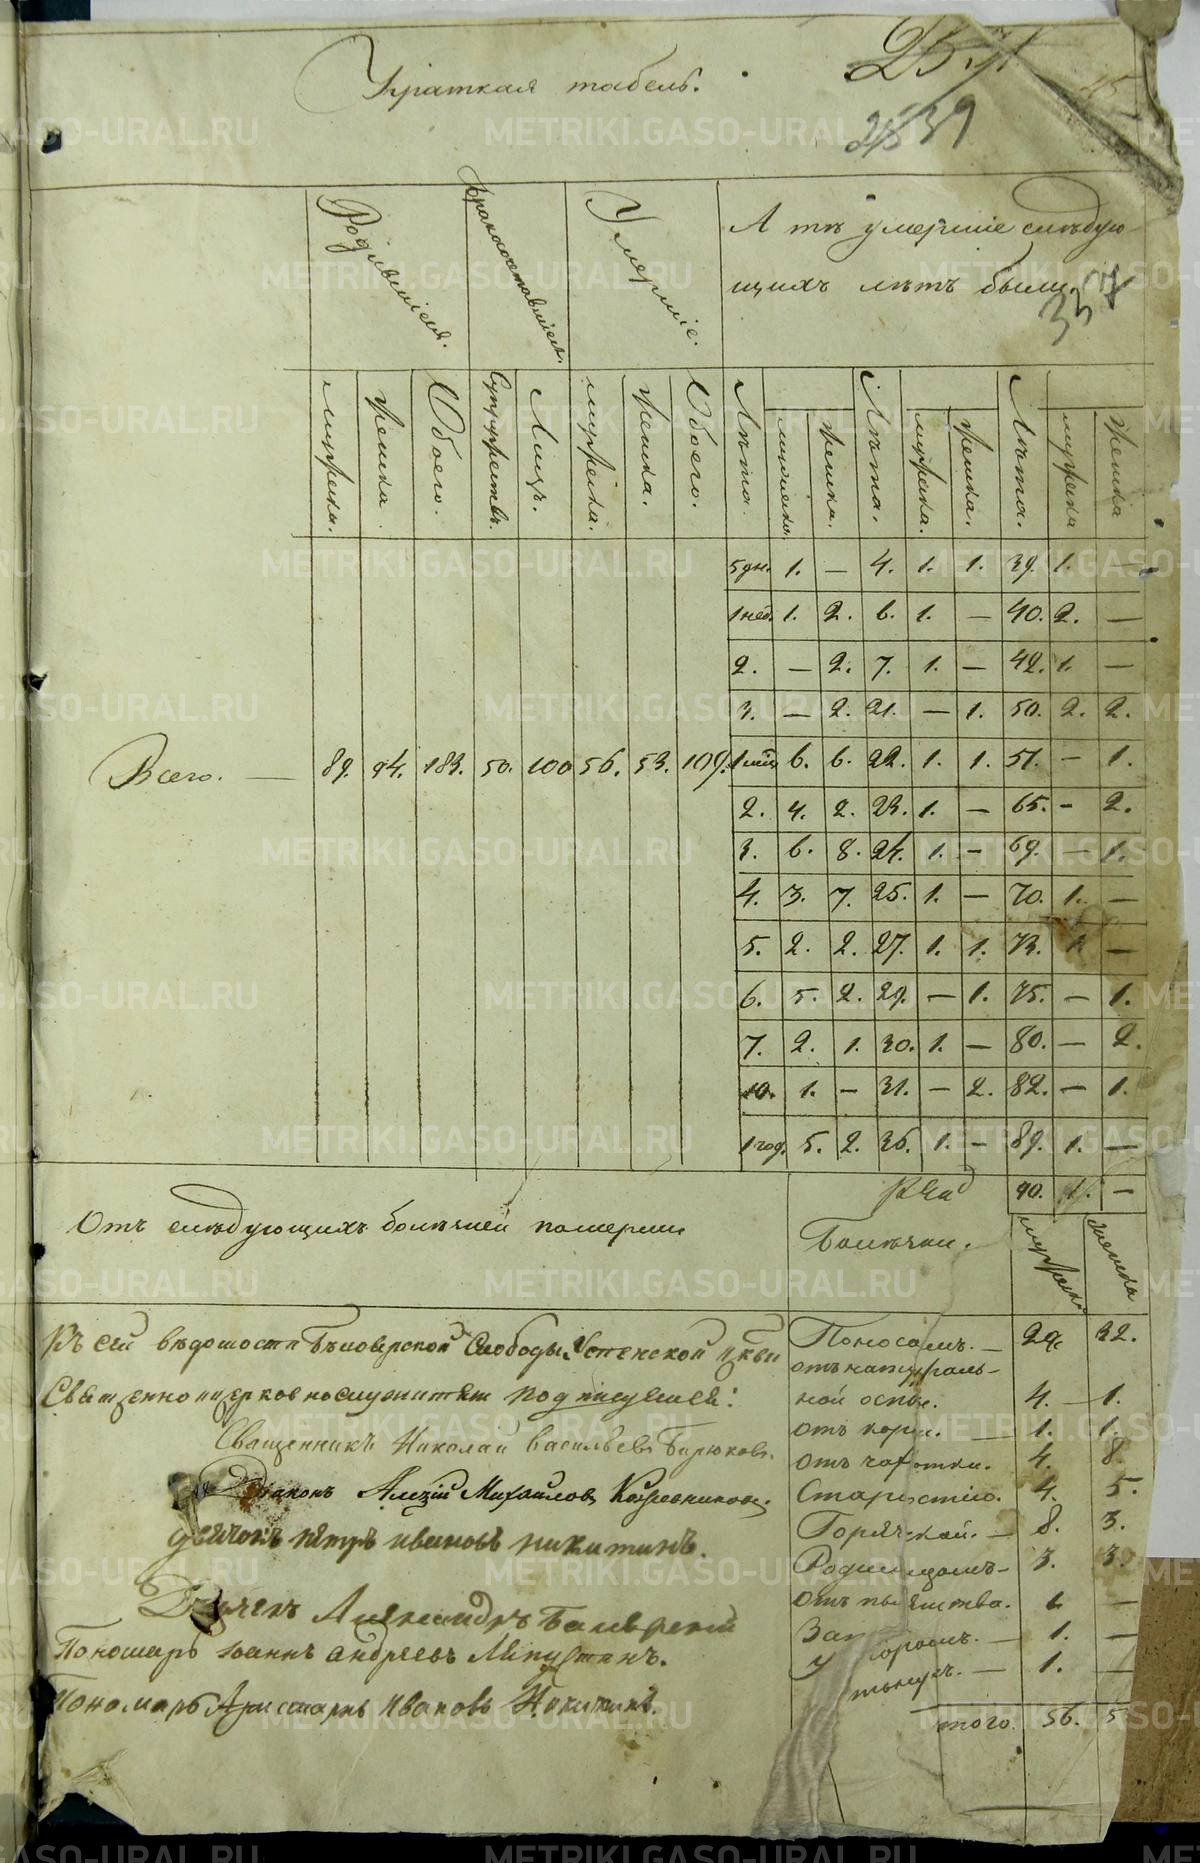 Краткая табель.
Родившіеся.
Бракосочетавшіеся.
Умершіе.
А тѣ умершіе слѣдую-
щихъ лѣтъ были.
мужеска. женска. Обоего. Супружествъ. Лицъ. мужеска. женска. Обоего. Лѣта. мужеска. женска. Лѣта. мужеска. женска. Лѣта. мужеска женска
5 дн. 1. — 4. 1. 1. 39. 1. —
1 нед. 1. 2. 6. 1. — 40. 2. —
2. — 2. 7. 1. — 42. 1. —
3. — 2. 21. — 1. 50. 2. 2.
Всего. — 89. 94. 183. 50. 100 56. 53. 109. 1 мѣц 6. 6. 22. 1. 1. 57. — 1.
2. 4. 2. 23. 1. — 65. — 2.
3. 6. 8. 24. 1. — 69. — 1.
4. 3. 7. 25. 1. — 70. 1. —
5. 2. 2. 27. 1. 1. 73. 1. —
6. 5. 2. 29. — 1. 75. — 1.
7. 2. 1. 30. 1. — 80. — 2.
10. 1. — 31. — 2. 82. — 1.
1 год. 5. 2. 36. 1. — 89. 1. —
90. 1. —
Отъ слѣдующихъ болѣзней померли
Болѣзни.
мужеска женска
Къ сей вѣдомости Слободы Успенской цркви
Священноицерковнослужители подписуемся:
Священникъ Николай Васильевъ Бирюковъ.
Діаконъ Алеѯій Михайловъ Кожевниковъ.
дьячокъ петръ ивановъ никитинъ.
Дьячекъ Александръ
Пономарь Іоаннъ Андреевъ
Пономарь Ивановъ Никитинъ.
Поносомъ. — 29 32.
отъ натураль-
ной оспы. 4. 1.
отъ кори. — 1. 1.
отъ чахотки. 4. 8.
Старостію. 4. 5.
Горячкой. — 8. 3.
Родимцомъ — 3. 3.
отъ пьянства. —
1. —
1. —
того. 56. 5